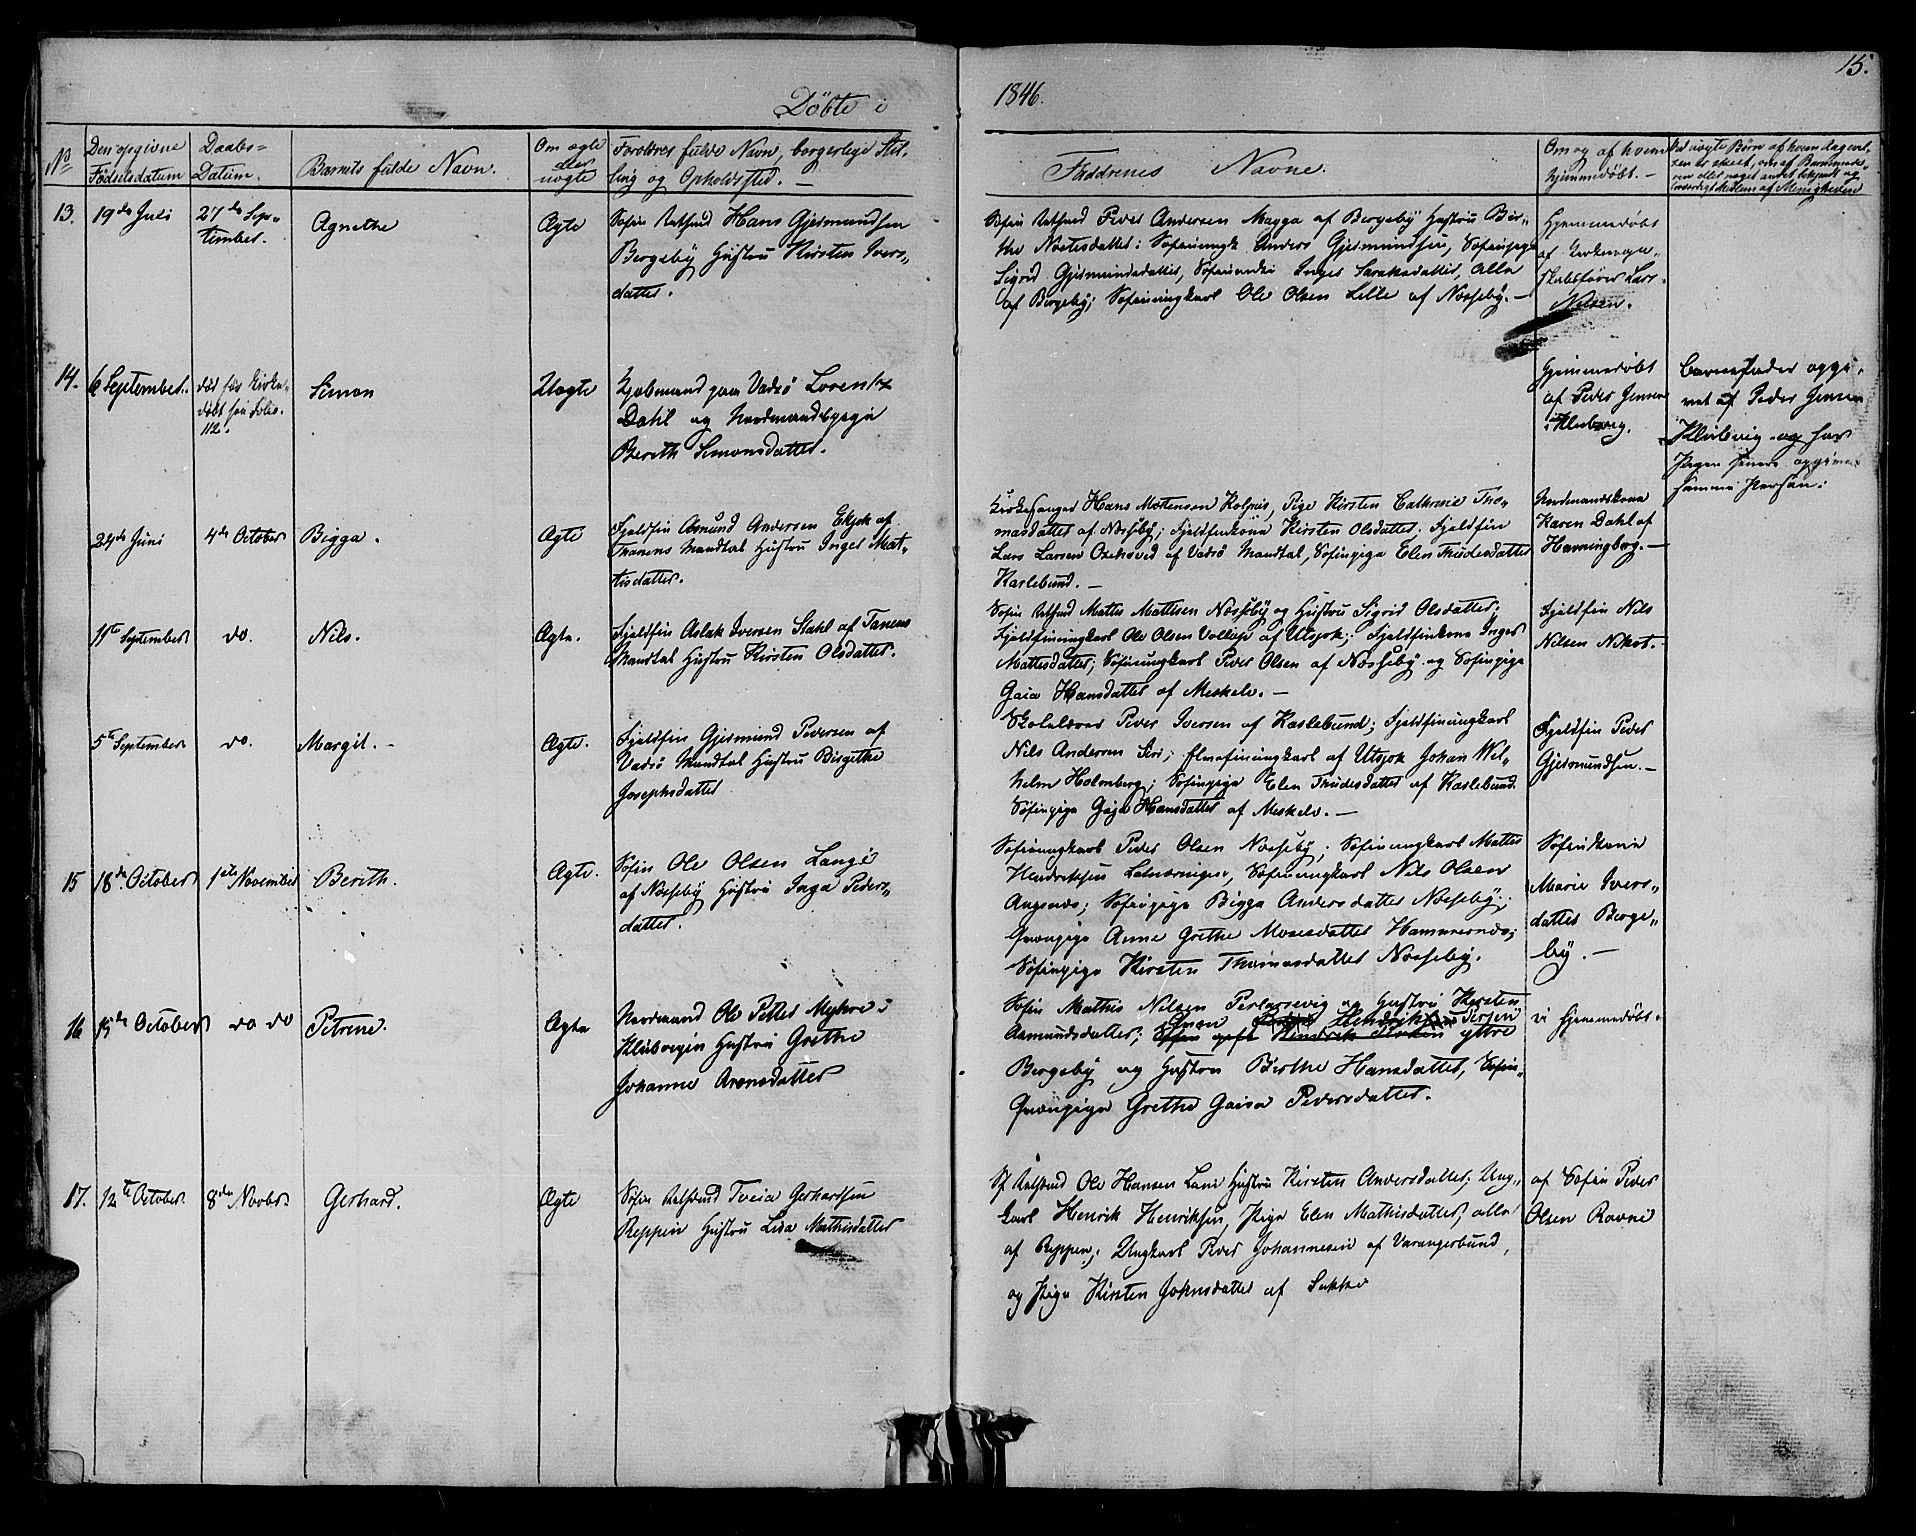 15.
Døbte i 1846.
No
Den opgivne
Fødselsdatum
Daabs-
Datum.
Barnets fulde Navn.
Om ægte
eller
uægte
Forældres fulde Navn, borgerlige Stil-
ling og Opholdsted. —
Faddrenes Navne.
Om og af hvem
hjemmedøbt. —
13.
19de Juli
27de Sep-
tember.
Agnethe
Ægte
Søfin Hans Gjermundsen
Bergeby Hustru Kirsten Ivers-
datter.
Peder Andersen Magga af Bergeby Hustru Bir-
Anders Gjermundsen, Søfinpige
Sigrid Gjermundsdatter, Inger alle
af Bergeby; Søfinungkarl Ole Olsen Lille af Næsseby. —
Hjemmedøbt
af
Lars
Nilsen.
14.
6 September.
død før Kirke-
døbt see Folio
112.
Simon
Uægte
Lorentz
Dahl og Nordmandspige
Bereth Simonsdatter.
Hjemmedøbt
af Peder Jensen
i Klubvig.
Barnefader opgi-
vet af Peder Jensen
Klubvig og har
Pigen senere opgivet
samme Person.
24de Juni
4de October
Bigga.
Ægte
Fjeldfin Amund Andersen af
Tanens Mandtal Hustru Inger Mat-
tisdatter.
Kirkesanger Hans Mortensen Kolpus, Pige Kirsten Cathrine Tho-
masdatter af Næsseby; Fjeldfinkone Kirsten Olsdatter; Fjeldfin
Lars Larsen af Vadsø Mandtal, Søfinpige Elen Thudesdatter
Karlebund. —
Nordmandskone
Karen Dahl af
Havningberg. —
11te September
do.
Nils.
Ægte.
Fjeldfin Aslak Iversen Stahl af Tanens
Mandtal Hustru Kirsten Olsdatter.
Søfin Mattis Mattisen Næsseby og Hustru Sigrid Olsdatter;
Fjeldfinungkarl Ole Olsen af Utsjok; Fjeldfinkone Inger
Mattisdatter; Søfinungkarl Peder Olsen af Næsseby og Søfinpige
Gaia Hansdatter af Meskelv. —
Fjeldfin Nils
Nilsen Nikot. —
5te September
do.
Margit. —
Ægte.
Fjeldfin Gjermund Pedersen af
Vadsø Mandtal Hustru Birgithe
Josephsdatter
Skolelærer Peder Iversen af Karlebund; Fjeldfinungkarl
Nils Andersen Siri; af Utsjok Johan Wil-
helm Holmberg; Søfinpige Elen Thudesdatter af Karlebund.
Søfinpige Gaja Hansdatter af Meskelv. —
Fjeldfin Peder
Gjermundsen. —
15
18de October
1ste November
Berith.
Ægte.
Søfin Ole Olsen Lange
af Næsseby Hustru Inga Peders-
datter.
Søfinungkarl Peder Olsen Næsseby; Søfinungkarl Mattis
Hendriksen Søfinungkarl Nils Olsen
Angsnæs; Søfinpige Bigga Andersdatter Næsseby;
Qvænpige Anne Grethe Mosesdatter Hammernæs;
Søfinpige Kirsten Thomasdatter Næsseby.
Søfinkone
Marie Ivers-
datter Berge-
by. —
16
15de October
do do
Petrine.
Ægte
Nordmand Ole Petter Myhre i
Klubvigen Hustru Grethe
Johanne Arensdatter
Søfin Mathis Nilsen og Hustru Kirsten
Asmundsdatter; Hendrik
Bergeby og Hustru Birthe Hansdatter, Søfin-
Qvænpige Grethe Gaisa Pedersdatter.
ei hjemmedøbt.
17.
12te October
8de Novbr.
Gerhard.
Ægte
Søfin Tveia Gerhardsen
Reppen Hustru Lisa Mathisdatter
Ole Hansen Hustru Kirsten Andersdatter; Ung-
karl Henrik Henriksen, Pige Elen Mathisdatter, alle
af Reppen; Ungkarl Peder Johannesen af Varangerbund,
og Pige Kirsten Johnsdatter af
af Søfin Peder
Olsen Ravne